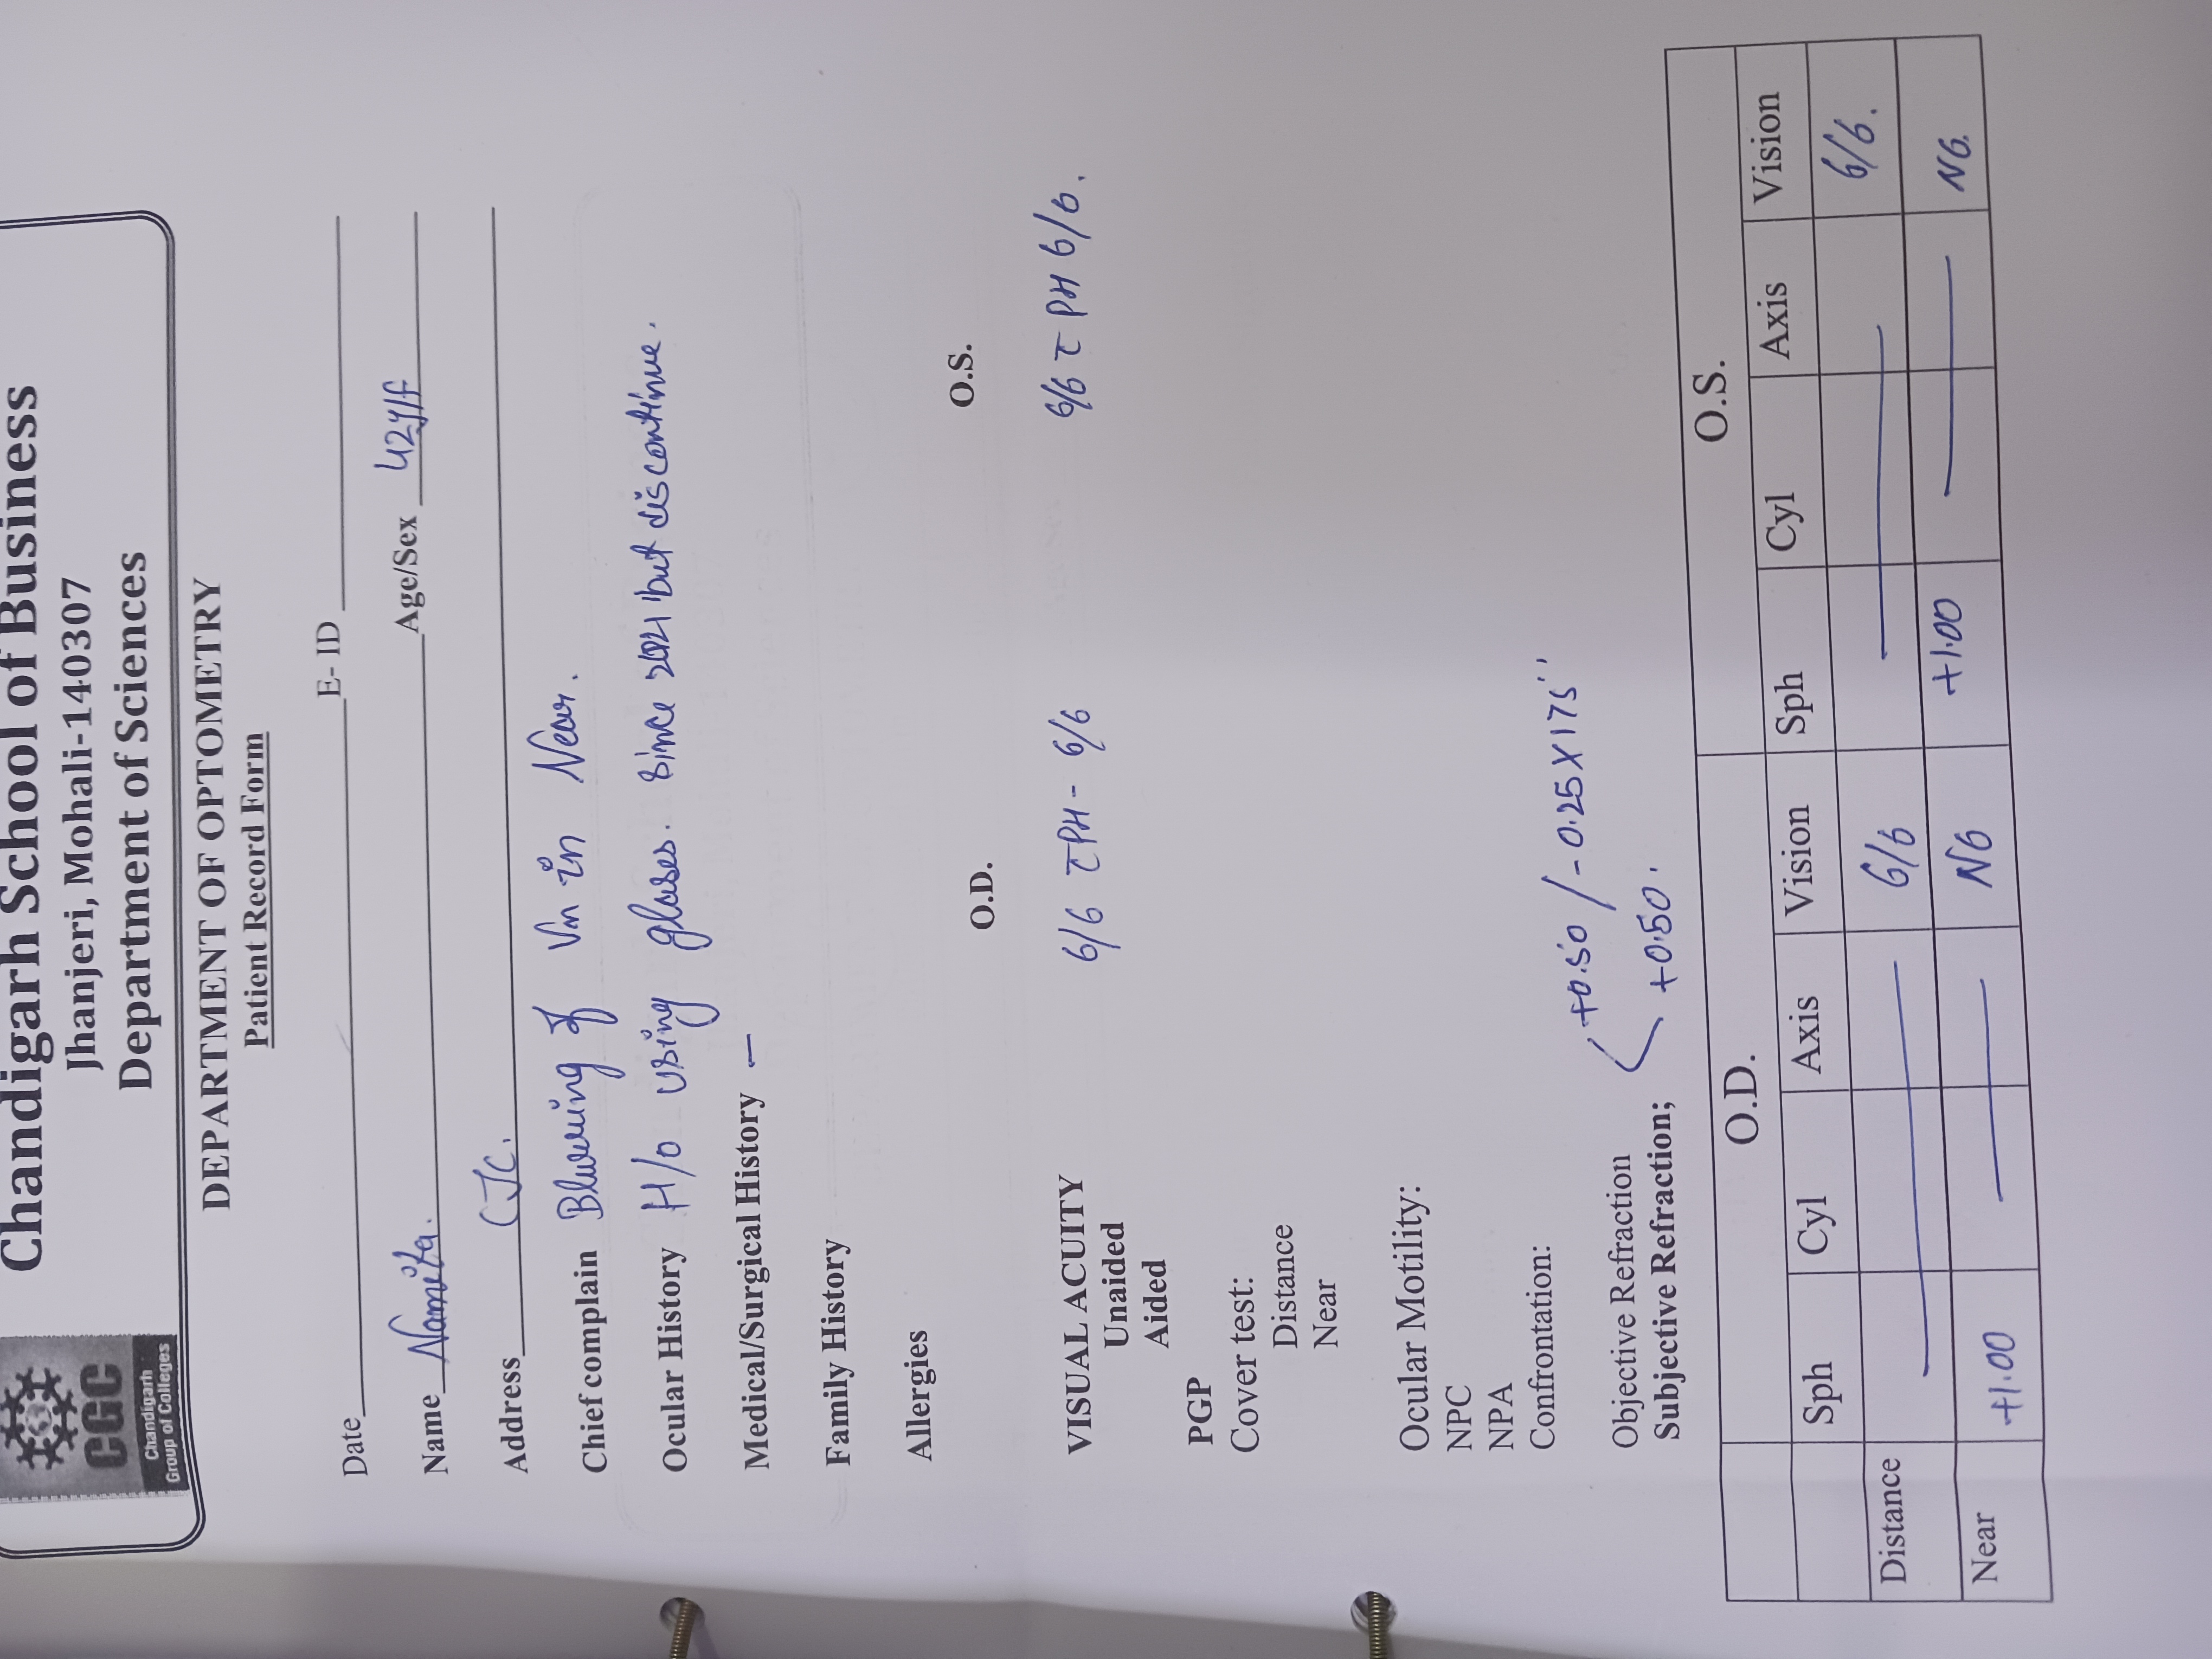 Chandigarh School of Business
Jhanjeri, Mohali-140307
Department of Sciences
CGC
Chandigarh
Group of Colleges
DEPARTMENT OF OPTOMETRY
Patient Record Form
Date E- ID
Name Namita. Age/Sex 42y/f
Address CJC.
Chief complain Blurring of Vn in Near.
Ocular History H/o using glases. Since 2021 but discontinue.
Medical/Surgical History —
Family History
Allergies
O.D. O.S.
VISUAL ACUITY 6/6 c̄ PH - 6/6 6/6 c̄ PH 6/6.
Unaided
Aided
PGP
Cover test:
Distance
Near
Ocular Motility:
NPC
NPA
Confrontation:
+0.50 / -0.25 X 175''
Objective Refraction
Subjective Refraction; +0.50.
O.D. O.S.
Sph Cyl Axis Vision Sph Cyl Axis Vision
Distance — 6/6 — 6/6.
Near +1.00 — N6 +1.00 — N6.